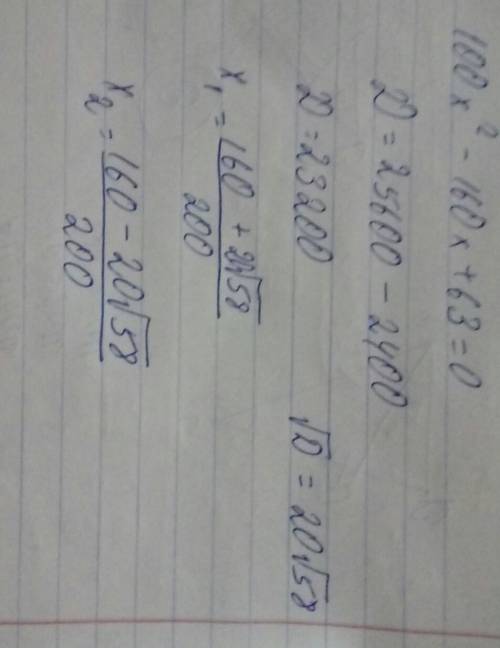 100x² - 160x + 63 = 0
D = 25600 - 2400
D = 23200 √D = 20√58
x₁ = (160 + 20√58)/200
x₂ = (160 - 20√58)/200